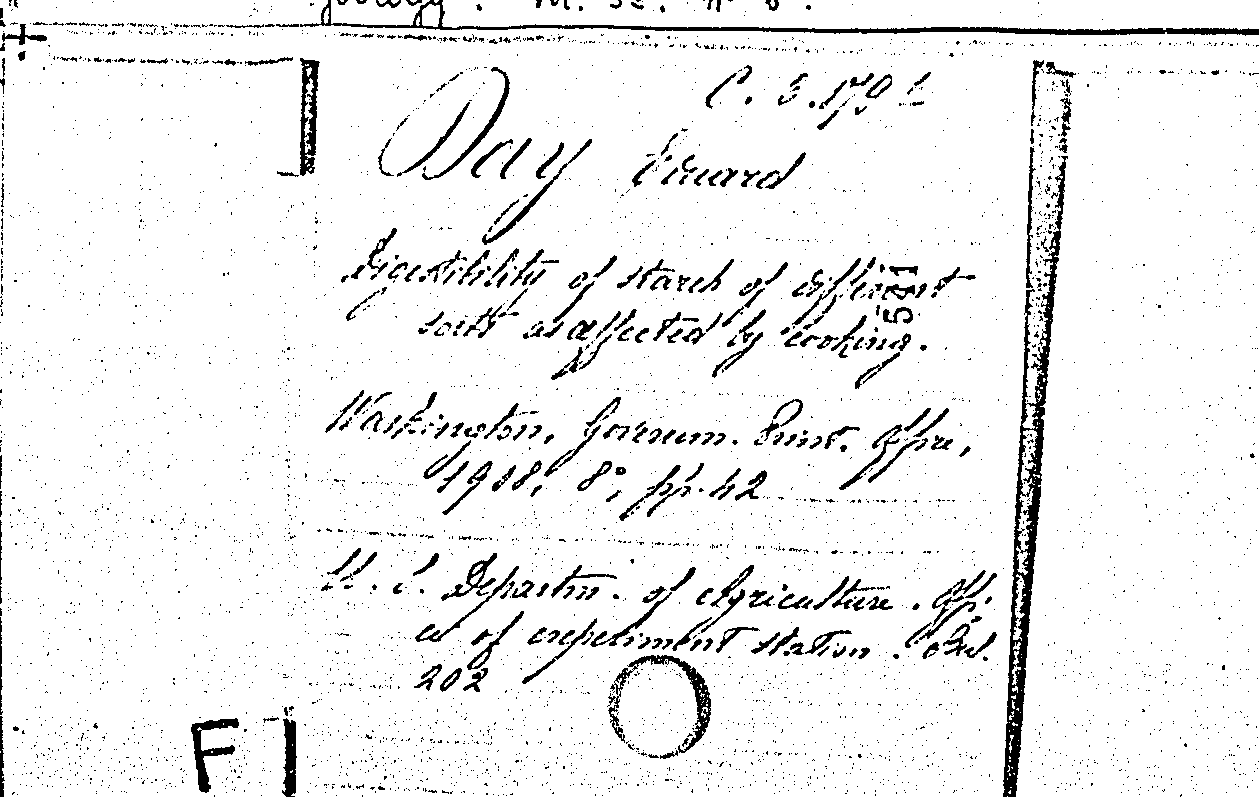 C. 3.179
Day Eduard
Digestibility of starch of different
sorts as affected by cooking.
Washington, Governm. Print. Office,
1908, 8°, pp. 42
U. S. Departm. of Agriculture. Offi-
ce of experiment station. Bul.
202
F